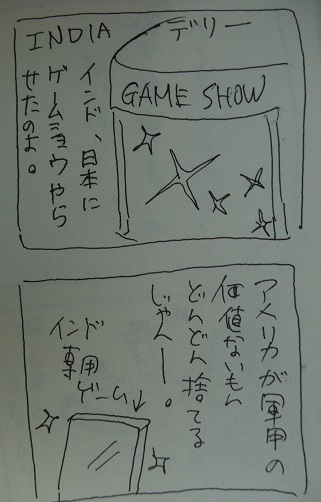 INDIA
デリー
GAME SHOW
インド、日本に
ゲームショウやら
せたのよ。
アメリカが軍用の
価値ないもん
どんどん捨てる
じゃんー。
インド
専用
ゲーム